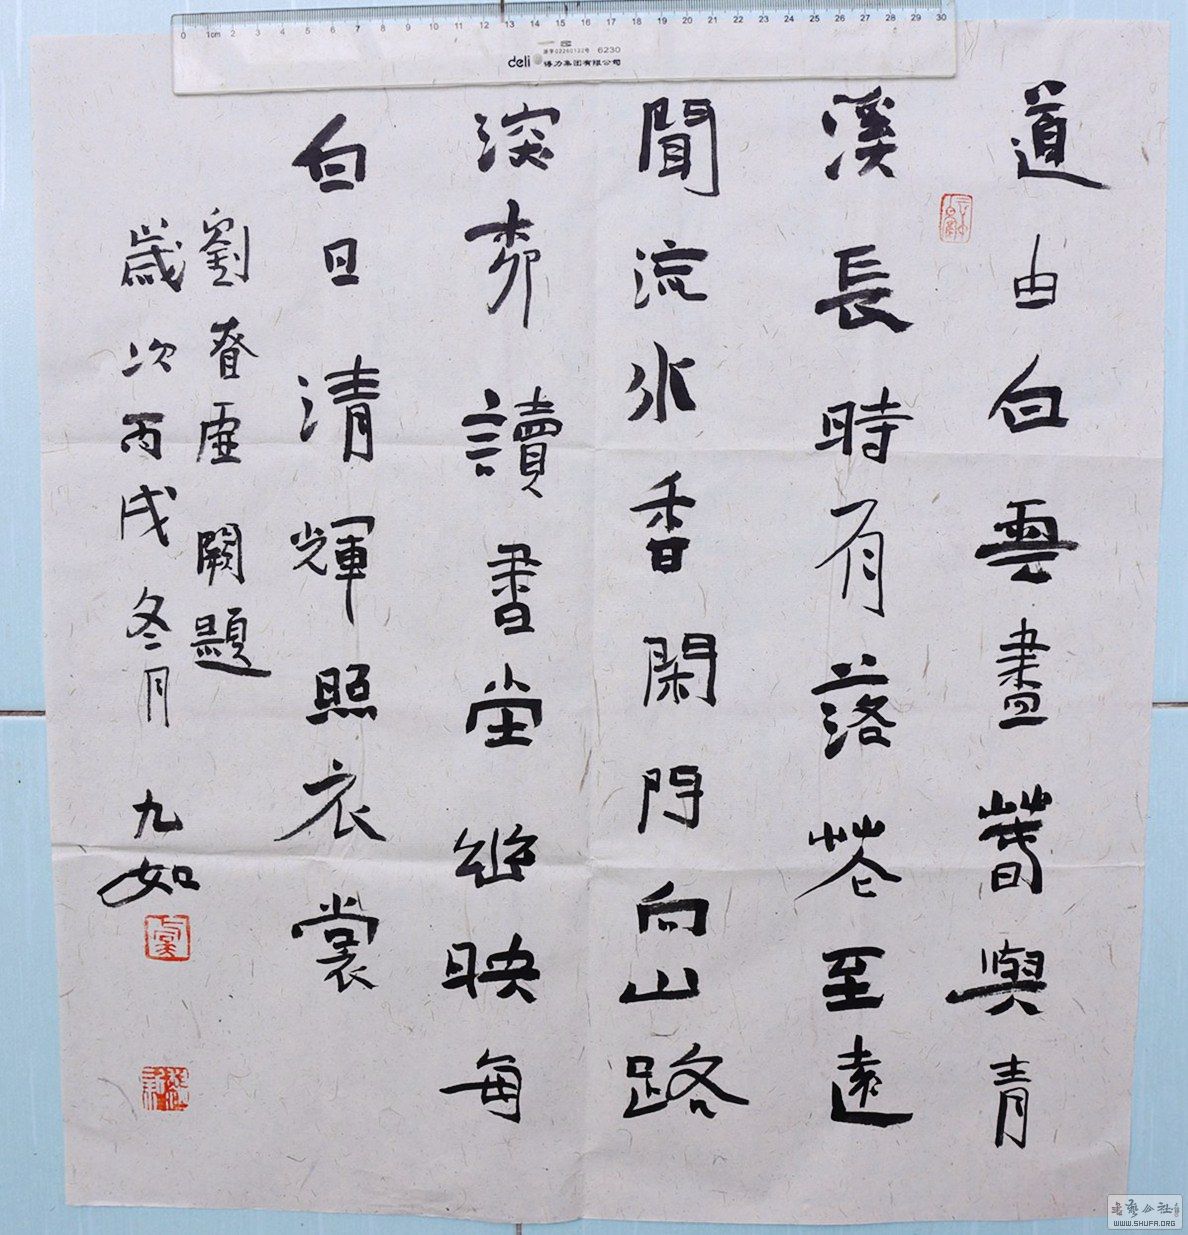 0 1cm 2 3 4 5 6 7 8 9 10 11 12 13 14 15 16 17 18 19 20 21 22 23 24 25 26 27 28 29 30
6230
deli 得力集团有限公司
道由白雲盡春與青
溪長時有落花至遠
聞流水香閑門向山路
深柳讀書堂幽映每
白日清輝照衣裳
劉眘虛 闕題
歲次丙戌冬月 九如
書藝公社
WWW.SHUFA.ORG